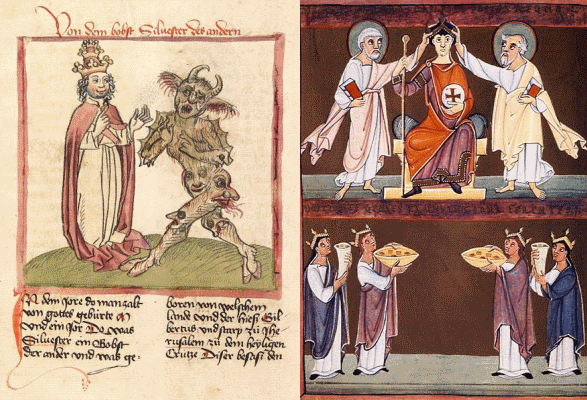 Von dem bobst Siluester des andern
N dem Jore do man zalt
von gottes gebürte M
vnd ein jor Do was
Siluester ein Bobst
der ander vnd was ge-
boren von welschem
lande vnd der hiesi Gil
bertus vnd starp zü Jhe
rusalem zü dem heyligen
Crütze Diser besasi den